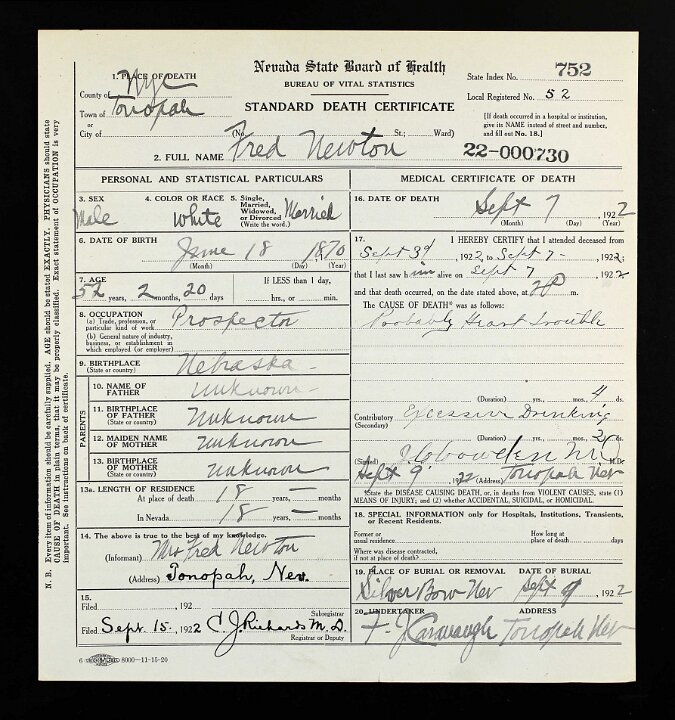 Nevada State Board of Health
BUREAU OF VITAL STATISTICS
STANDARD DEATH CERTIFICATE
State Index No. 752
Local Registered No. 52
[If death occurred in a hospital or institution, give its NAME instead of street and number, and fill out No. 18.]
22-000730
1. PLACE OF DEATH
County of Nye
Town of Tonopah
or
City of
(No. St.; Ward)
2. FULL NAME Fred Newton
N. B. Every item of information should be carefully supplied. AGE should be stated EXACTLY. PHYSICIANS should state
CAUSE OF DEATH in plain terms, that it may be properly classified. Exact statement of OCCUPATION is very
important. See instructions on back of certificate.
PERSONAL AND STATISTICAL PARTICULARS
3. SEX Male
4. COLOR OR RACE White
5. Single, Married, Widowed, or Divorced (Write the word.) Married
6. DATE OF BIRTH 18 1870
(Month) (Day) (Year)
7. AGE 52 years, 2 months, 20 days
If LESS than 1 day, hrs., or min.
8. OCCUPATION
(a) Trade, profession, or particular kind of work Prospector
(b) General nature of industry, business, or establishment in which employed (or employer)
9. BIRTHPLACE (State or country) Nebraska -
PARENTS
10. NAME OF FATHER Unknown -
11. BIRTHPLACE OF FATHER (State or country) Unknown
12. MAIDEN NAME OF MOTHER Unknown
13. BIRTHPLACE OF MOTHER (State or country) Unknown
13a. LENGTH OF RESIDENCE
At place of death 18 years, — months
In Nevada 18 years, — months
14. The above is true to the best of my knowledge.
(Informant) Mrs Fred Newton
(Address) Tonopah, Nev.
15.
Filed , 192
Subregistrar
Filed Sept. 15, 1922 C. J. Richards M. D.
Registrar or Deputy
6 8000—11-15-20
MEDICAL CERTIFICATE OF DEATH
16. DATE OF DEATH Sept 7, 1922
(Month) (Day) (Year)
17. I HEREBY CERTIFY that I attended deceased from
Sept 3d 1922, to Sept 7 - 1922;
that I last saw him alive on Sept 7 1922
and that death occurred, on the date stated above, at m.
The CAUSE OF DEATH* was as follows:
Probably Heart Trouble
(Duration) yrs. mos. 4 ds.
Contributory (Secondary) Excessive Drinking
(Duration) yrs. mos. ds.
(Signed) M.D.
Sept 9, 1922 (Address) Tonopah Nev
*State the DISEASE CAUSING DEATH, or, in deaths from VIOLENT CAUSES, state (1)
MEANS OF INJURY; and (2) whether ACCIDENTAL, SUICIDAL, or HOMICIDAL.
18. SPECIAL INFORMATION only for Hospitals, Institutions, Transients,
or Recent Residents.
Former or usual residence
How long at place of death? days
Where was disease contracted, if not at place of death?
19. PLACE OF BURIAL OR REMOVAL Silver Bow Nev
DATE OF BURIAL Sept 9, 1922
20. UNDERTAKER ADDRESS
Tonopah Nev